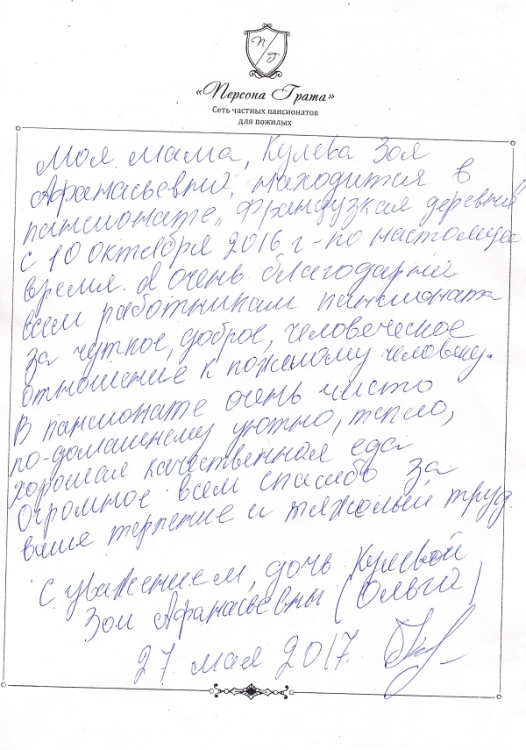 П Г
«Персона Грата»
Сеть частных пансионатов
для пожилых
Моя мама, Кулева Зоя
Афанасьевна, находится в
пансионате „Французкая деревня"
с 10 октября 2016 г - по настоящее
время. Я очень благодарна
всем работникам пансионата
за чуткое, доброе, человеческое
отношение к пожилому человеку.
В пансионате очень чисто
по-домашнему уютно, тепло,
хорошая качественная еда
Огромное всем спасибо за
ваше терпение и тяжолый труд.
С уважением, дочь Кулевой
Зои Афанасьевны (Ольга)
27 мая 2017.